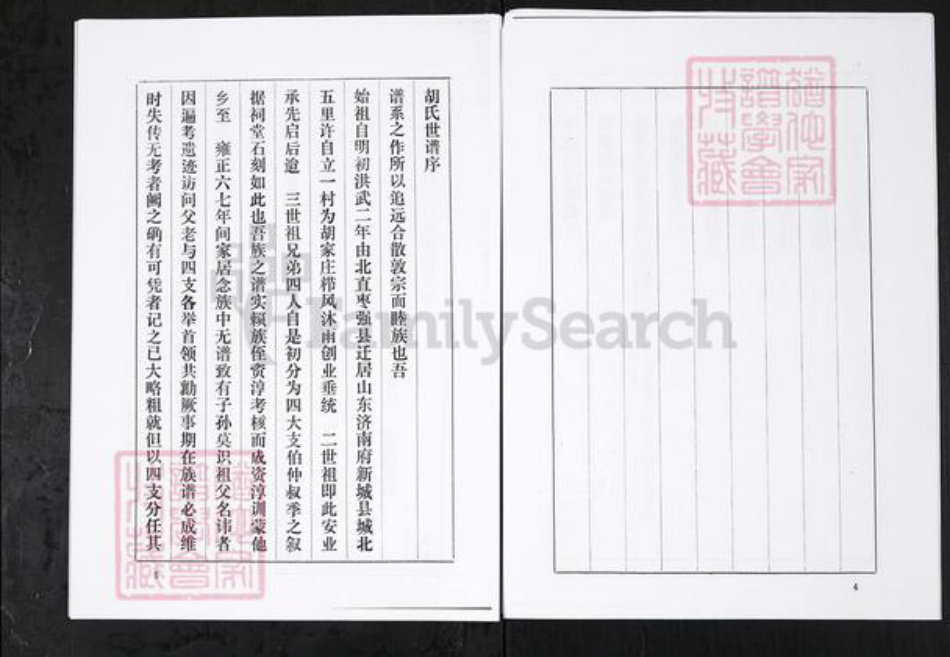 胡氏世谱序
谱系之作所以追远合散敦宗而睦族也吾
始祖自明初洪武二年由北直枣强县迁居山东济南府新城县城北
五里许自立一村为胡家庄栉风沐雨创业垂统 二世祖即此安业
承先启后逾 三世祖兄弟四人自是初分为四大支伯仲叔季之叙
据祠堂石刻如此也吾族之谱实赖族侄资淳考核而成资淳训蒙他
乡至 雍正六七年间家居念族中无谱致有子孙莫识祖父名讳者
因遍考遗迹访问父老与四支各举首领共勷厥事期在族谱必成维
时失传无考者阙之确有可凭者记之已大略粗就但以四支分任其
4
FamilySearch